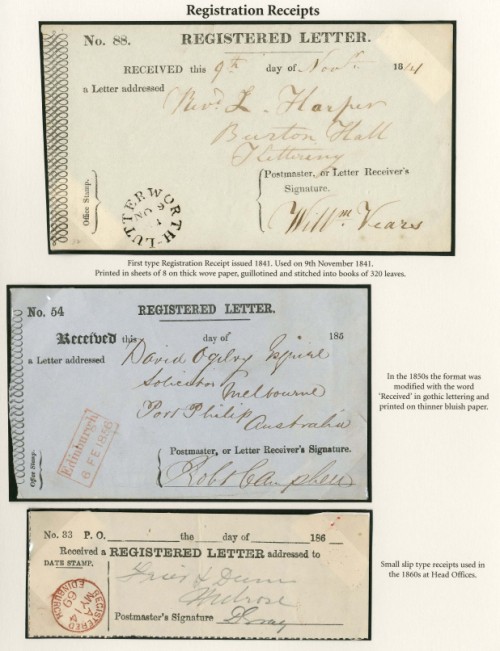 Registration Receipts
No. 88. REGISTERED LETTER.
RECEIVED this 9th day of Novr 1841
a Letter addressed
Revd. L. Harper
Burton Hall
Kettering
Office Stamp.
Postmaster, or Letter Receiver's
Signature.
LUTTERWORTH
NO 9
1
Willm Vears
First type Registration Receipt issued 1841. Used on 9th November 1841.
Printed in sheets of 8 on thick wove paper, guillotined and stitched into books of 320 leaves.
No. 54 REGISTERED LETTER.
Received this day of 185
a Letter addressed David Ogilvy Esquire
Solicitor Melbourne
Port Philip
Australia
Edinburgh
6 FE 1856
Office Stamp.
Postmaster, or Letter Receiver's Signature.
Robt Campbell
In the 1850s the format was
modified with the word
'Received' in gothic lettering and
printed on thinner bluish paper.
No. 83 P. O. the day of 186
Received a REGISTERED LETTER addressed to
DATE STAMP.
Melrose
REGISTERED
EDINBURGH
MY 19
69
Postmaster's Signature
Small slip type receipts used in
the 1860s at Head Offices.